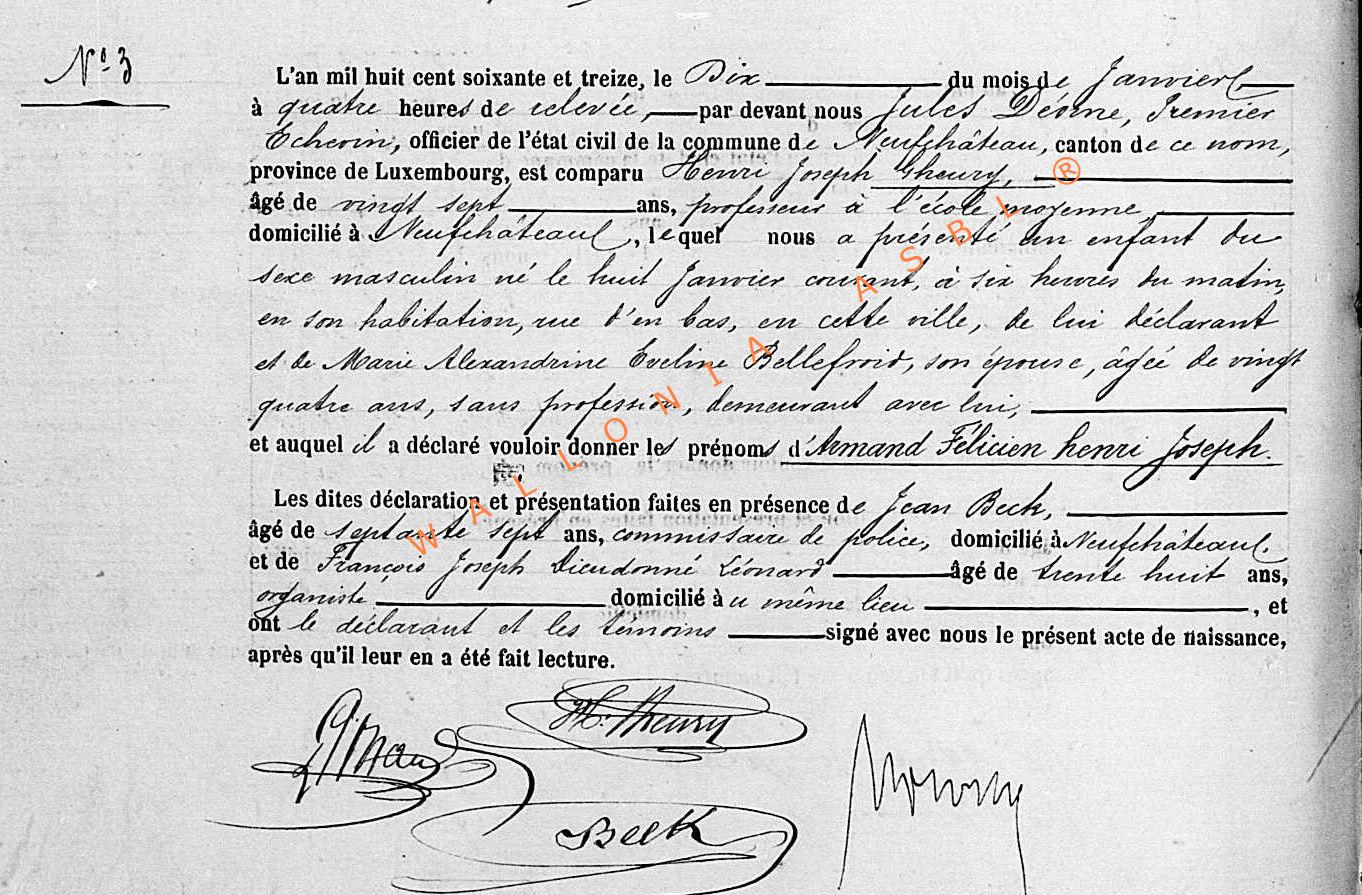 N° 3
L'an mil huit cent soixante et treize, le Dix du mois de Janvier
à quatre heures de relevée, par devant nous Jules Déome, Premier
Echevin, officier de l'état civil de la commune de Neufchâteau, canton de ce nom,
province de Luxembourg, est comparu Henri Joseph Gheury,
âgé de vingt sept ans, professeur à l'école moyenne,
domicilié à Neufchâteau, lequel nous a présenté un enfant du
sexe masculin né le huit Janvier courant, à six heures du matin,
en son habitation, rue d'en bas, en cette ville, de lui déclarant
et de Marie Alexandrine Eveline Bellefroid, son épouse, âgée de vingt
quatre ans, sans profession, demeurant avec lui,
et auquel il a déclaré vouloir donner les prénoms d'Armand Félicien henri Joseph.
Les dites déclaration et présentation faites en présence de Jean Beck,
âgé de septante sept ans, commissaire de police, domicilié à Neufchâteau
et de François Joseph Dieudonné Léonard âgé de trente huit ans,
organiste domicilié à u même lieu, et
ont le déclarant et les témoins signé avec nous le présent acte de naissance,
après qu'il leur en a été fait lecture.
H. Gheury
Beck
WALLONIA ASBL ®